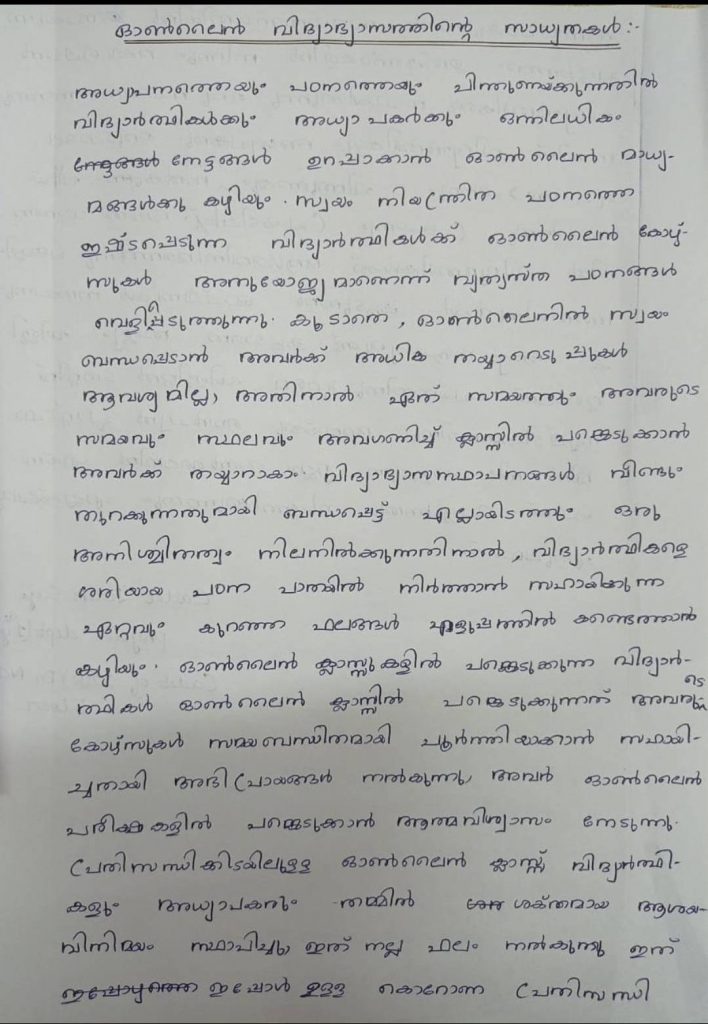 ഓൺലൈൻ വിദ്യാഭ്യാസത്തിന്റെ സാധ്യതകൾ :-
അധ്യപനത്തെയും പഠനത്തെയും പിന്തുണയ്ക്കുന്നതിൽ
വിദ്യാർത്ഥികൾക്കും അധ്യാപകർക്കും ഒന്നിലധികം
നേട്ടങ്ങൾ ഉറപ്പാക്കാൻ ഓൺലൈൻ മാധ്യ-
മങ്ങൾക്കു കഴിയും. സ്വയം നിയന്ത്രിത പഠനത്തെ
ഇഷ്ടപ്പെടുന്ന വിദ്യാർത്ഥികൾക്ക് ഓൺലൈൻ കോഴ്-
സുകൾ അനുയോജ്യമാണെന്ന് വ്യത്യസ്ത പഠനങ്ങൾ
വെളിപ്പെടുത്തുന്നു. കൂടാതെ, ഓൺലൈനിൽ സ്വയം
ബന്ധപ്പെടാൻ അവർക്ക് അധിക തയ്യാറെടുപ്പുകൾ
ആവശ്യമില്ല, അതിനാൽ ഏത് സമയത്തും അവരുടെ
സമയവും സ്ഥലവും അവഗണിച്ച് ക്ലാസ്സിൽ പങ്കെടുക്കാൻ
അവർക്ക് തയ്യാറാകാം. വിദ്യാഭ്യാസസ്ഥാപനങ്ങൾ വീണ്ടും
തുറക്കുന്നതുമായി ബന്ധപ്പെട്ട് എല്ലായിടത്തും ഒരു
അനിശ്ചിതത്വം നിലനിൽക്കുന്നതിനാൽ, വിദ്യാർത്ഥികളെ
ശരിയായ പഠന പാതയിൽ നിർത്താൻ സഹായിക്കുന്ന
ഏറ്റവും കുറഞ്ഞ ഫലങ്ങൾ എളുപ്പത്തിൽ കണ്ടെത്താൻ
കഴിയും. ഓൺലൈൻ ക്ലാസ്സുകളിൽ പങ്കെടുക്കുന്ന വിദ്യാർ-
ത്ഥികൾ ഓൺലൈൻ ക്ലാസ്സിൽ പങ്കെടുക്കുന്നത് അവരുടെ
കോഴ്സുകൾ സമയബന്ധിതമായി പൂർത്തിയാക്കാൻ സഹായി-
ച്ചതായി അഭിപ്രായങ്ങൾ നൽകുന്നു, അവർ ഓൺലൈൻ
പരീക്ഷകളിൽ പങ്കെടുക്കാൻ ആത്മവിശ്വാസം നേടുന്നു.
പ്രതിസന്ധിക്കിടയിലുള്ള ഓൺലൈൻ ക്ലാസ്സ് വിദ്യർത്ഥി-
കളും അധ്യാപകരും തമ്മിൽ ശക്തമായ ആശയ-
വിനിമയം സ്ഥാപിച്ചു, ഇത് നല്ല ഫലം നൽകുന്നു ഇത്
ഇപ്പോൾ ഉള്ള കൊറോണ പ്രതിസന്ധി